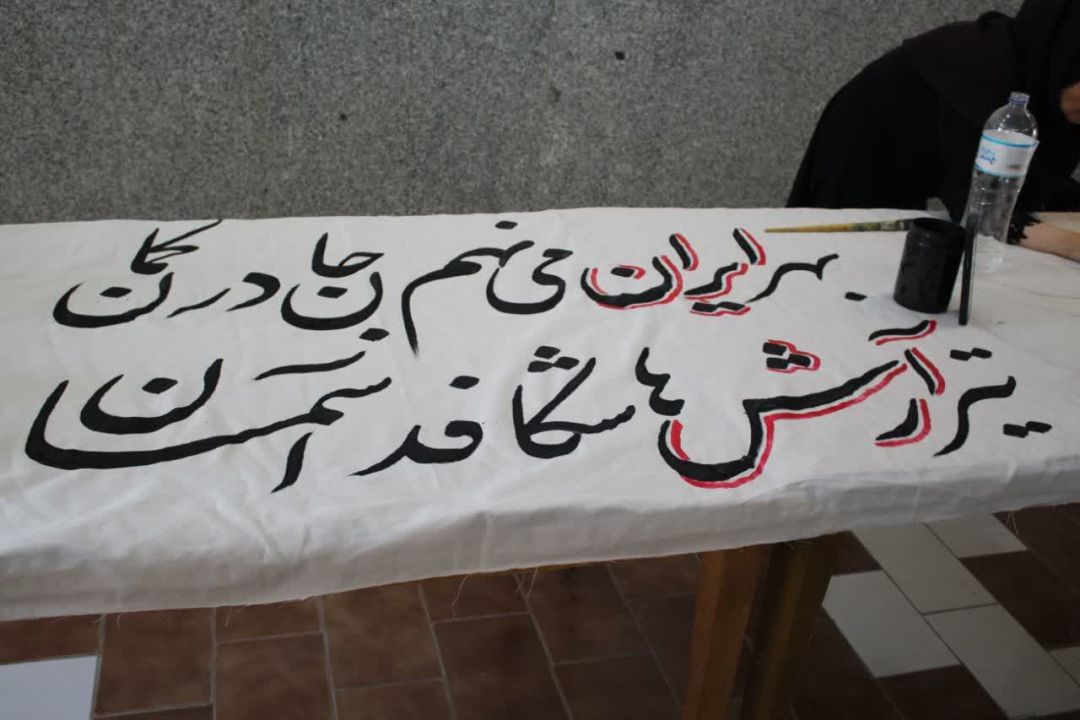 بهر ایران می نهم جان در کمان
تیر آرش ها شکافد آسمان